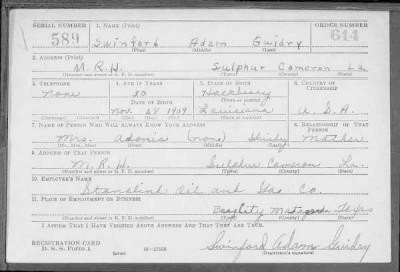 SERIAL NUMBER 1. NAME (Print) ORDER NUMBER
589 Swinford Adam Guidry 644
(First) (Middle) (Last)
2. ADDRESS (Print)
M.R.H. Sulphur Cameron La
(Number and street or R. F. D. number) (Town) (County) (State)
3. TELEPHONE 4. AGE IN YEARS 5. PLACE OF BIRTH 6. COUNTRY OF CITIZENSHIP
None 30 Hackberry
DATE OF BIRTH
Nov. 28 1909 Louisiana U.S.A.
(Exchange) (Number) (Mo.) (Day) (Yr.) (State or country)
7. NAME OF PERSON WHO WILL ALWAYS KNOW YOUR ADDRESS 8. RELATIONSHIP OF THAT PERSON
Mrs. Adonia (none) Guidry Mother
(Mr., Mrs., Miss) (First) (Middle) (Last)
9. ADDRESS OF THAT PERSON
M.R.H. Sulphur Cameron La.
(Number and street or R. F. D. number) (Town) (County) (State)
10. EMPLOYER'S NAME
Stanolind Oil and Gas Co.
11. PLACE OF EMPLOYMENT OR BUSINESS
Matagorda Texas
(Number and street or R. F. D. number) (Town) (County) (State)
I AFFIRM THAT I HAVE VERIFIED ABOVE ANSWERS AND THAT THEY ARE TRUE.
REGISTRATION CARD
D. S. S. Form 1 (over) Swinford Adam Guidry
(Registrant's signature)